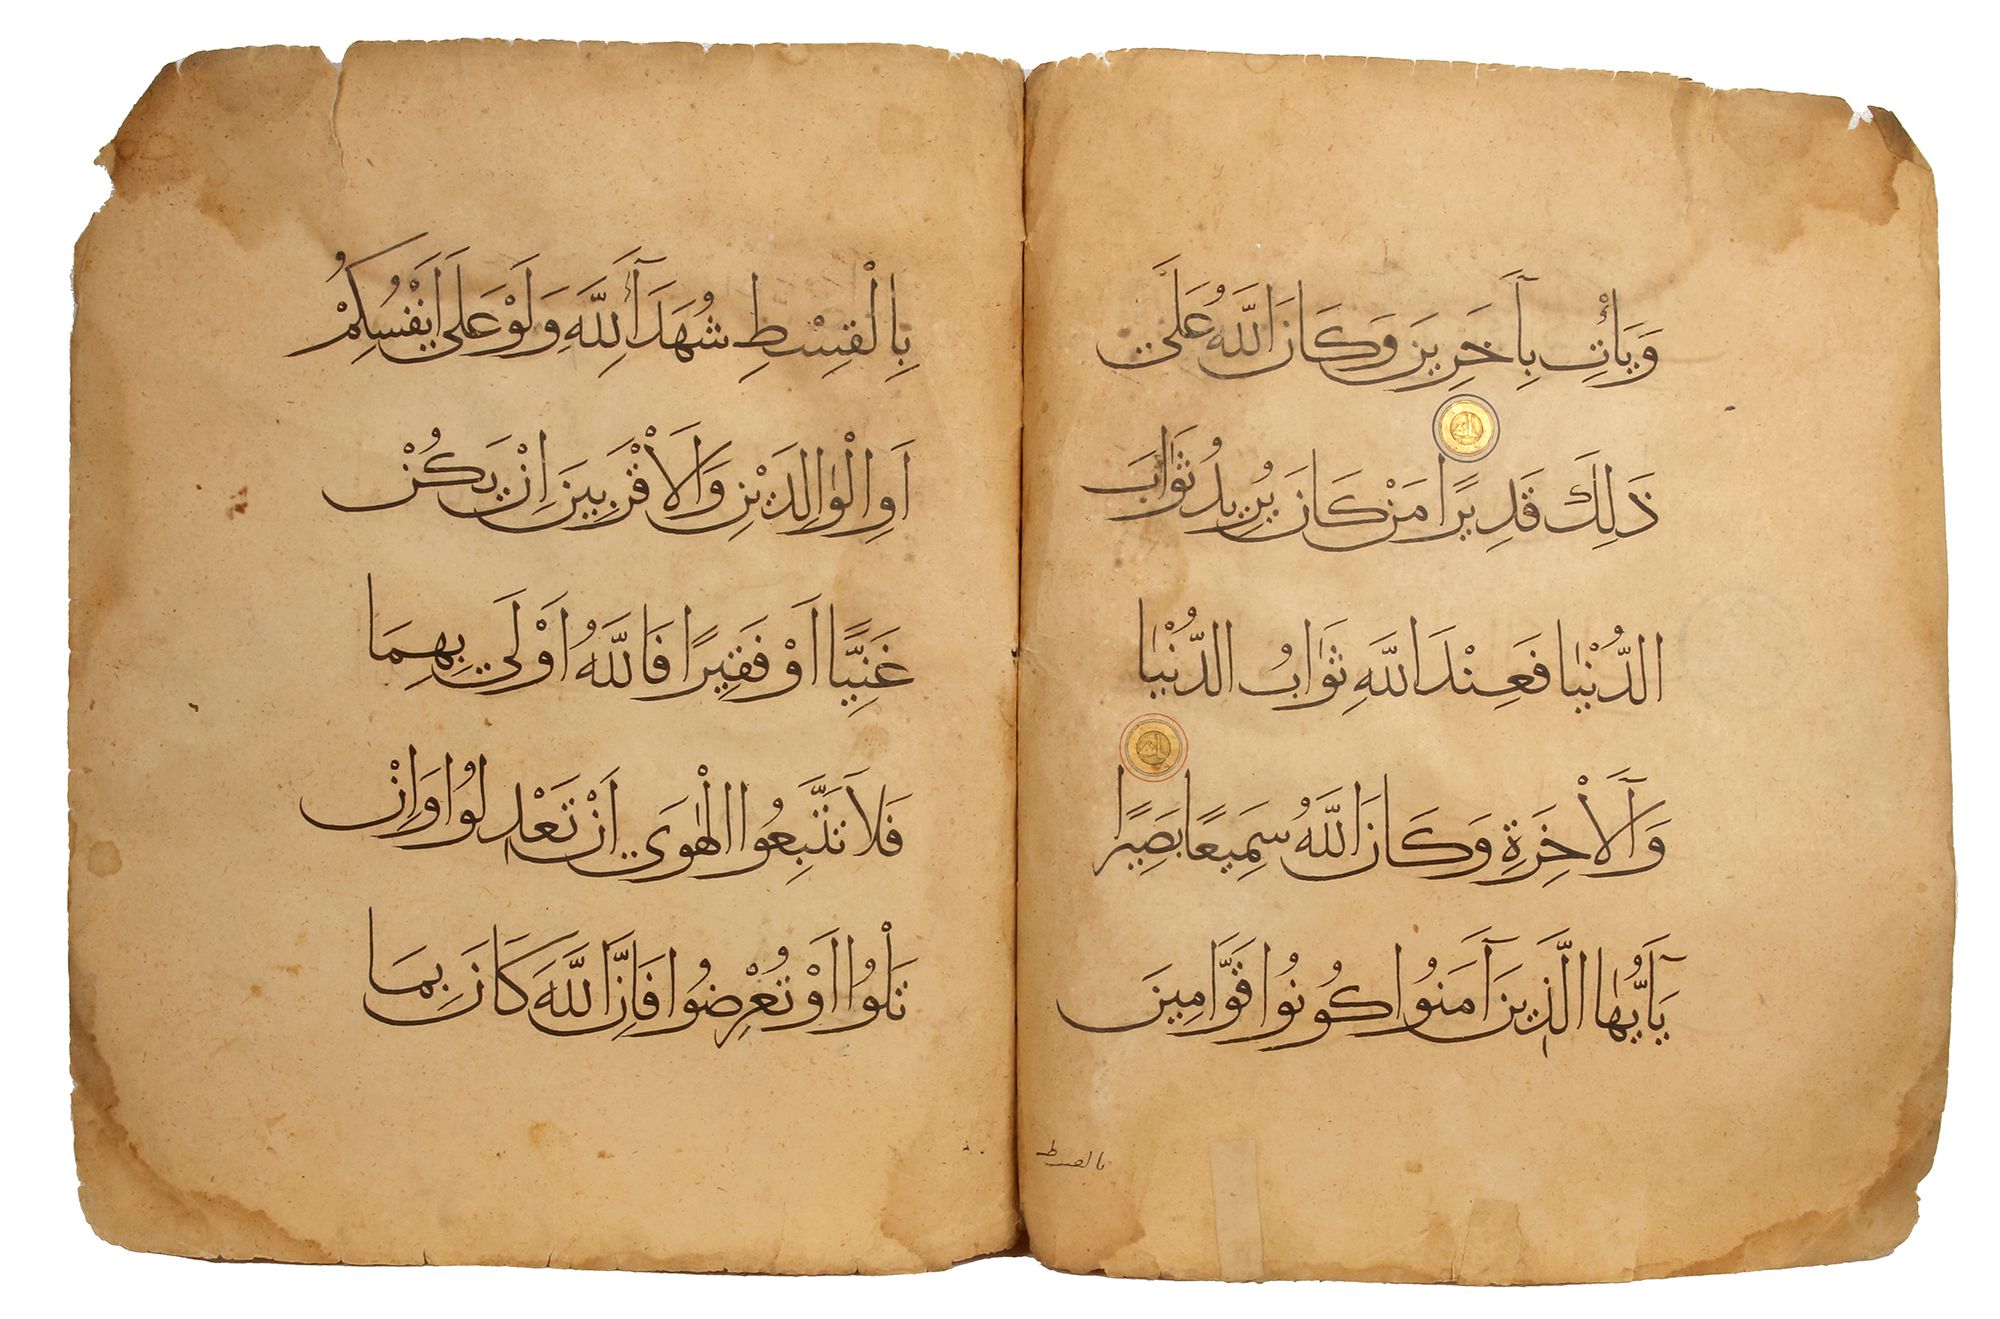 وَيَأْتِ بِآخَرِينَ وَكَانَ اللَّهُ عَلَى
ذَلِكَ قَدِيرًا مَنْ كَانَ يُرِيدُ ثَوَابَ
الدُّنْيَا فَعِنْدَ اللَّهِ ثَوَابُ الدُّنْيَا
وَالْآخِرَةِ وَكَانَ اللَّهُ سَمِيعًا بَصِيرًا
يَآأَيُّهَا الَّذِينَ آمَنُوا كُونُوا قَوَّامِينَ
بالقسط
بِالْقِسْطِ شُهَدَآءَ لِلَّهِ وَلَوْ عَلَى أَنْفُسِكُمْ
أَوِ الْوَالِدَيْنِ وَالْأَقْرَبِينَ إِنْ يَكُنْ
غَنِيًّا أَوْ فَقِيرًا فَاللَّهُ أَوْلَى بِهِمَا
فَلَا تَتَّبِعُوا الْهَوَى أَنْ تَعْدِلُوا وَإِنْ
تَلْوُوا أَوْ تُعْرِضُوا فَإِنَّ اللَّهَ كَانَ بِمَا